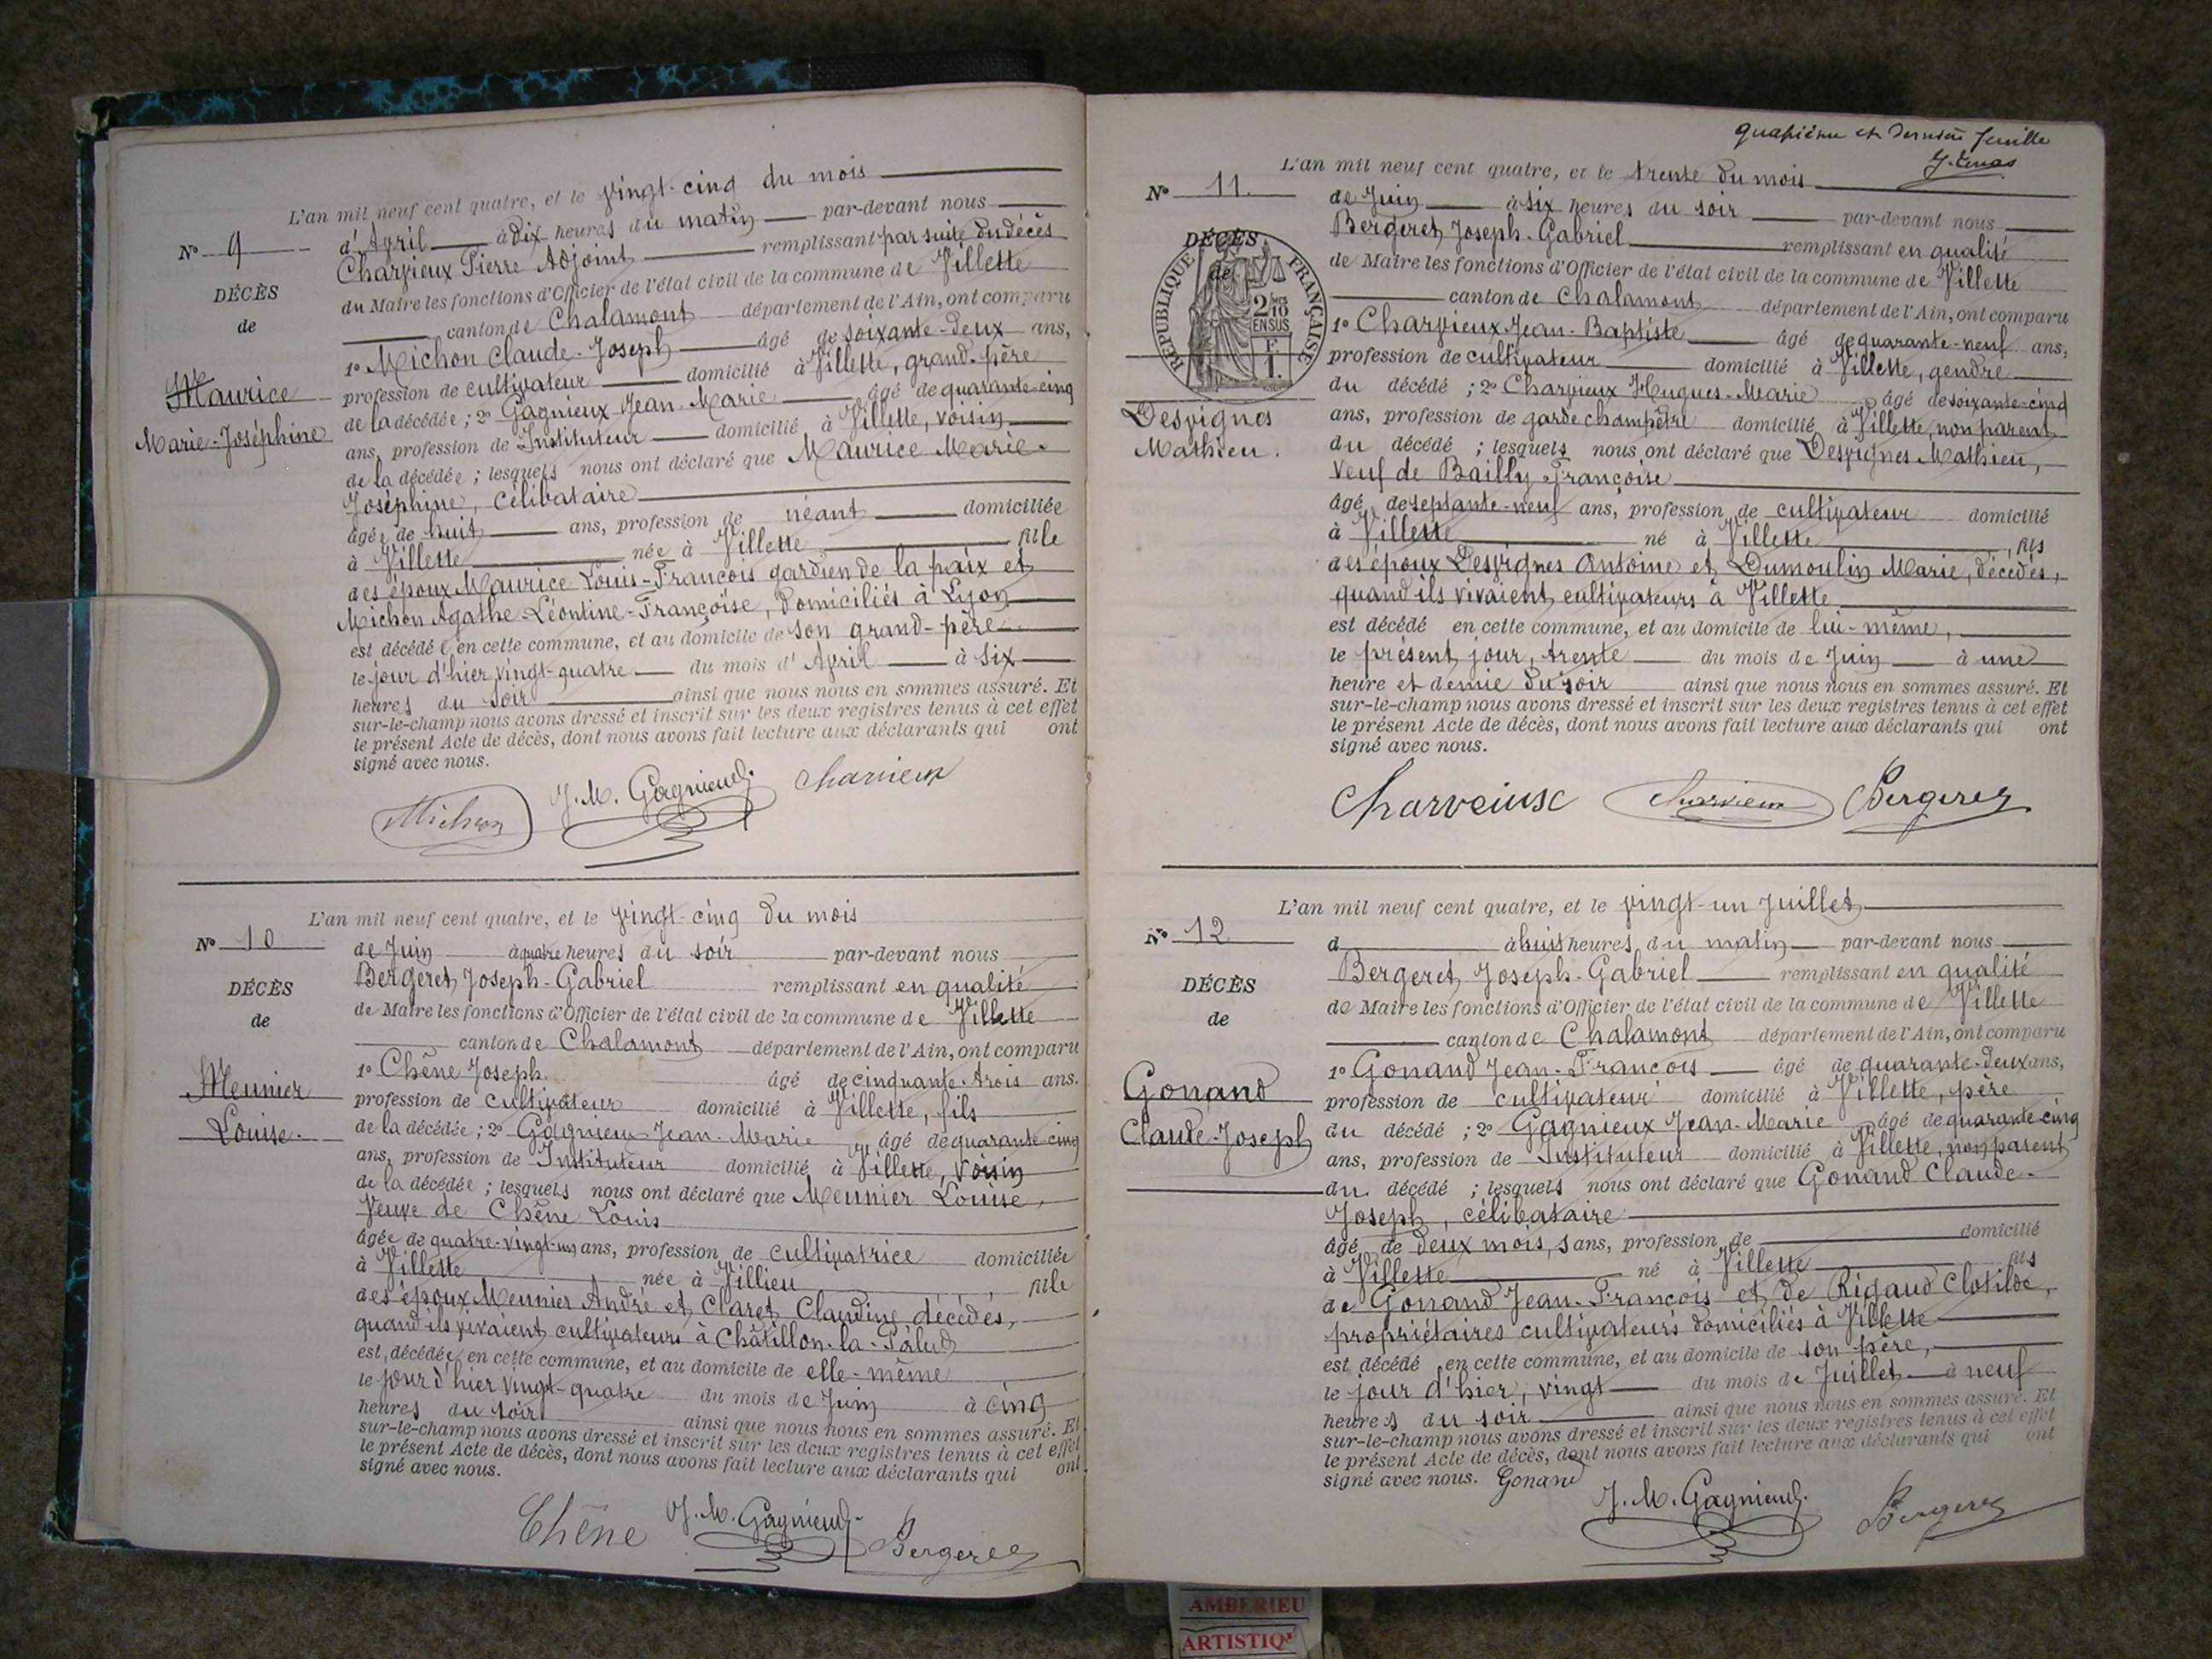 L'an mil neuf cent quatre, et le vingt-cinq du mois
N° 9
d'Avril à dix heures du matin par-devant nous
Charvieux Pierre Adjoint remplissant par suite du décès
DÉCÈS
du Maire les fonctions d'Officier de l'état civil de la commune de Villette
de
canton de Chalamont département de l'Ain, ont comparu
1° Michon Claude-Joseph âgé de soixante-deux ans,
Maurice
profession de cultivateur domicilié à Villette, grand-père
Marie-Joséphine
de la décédée ; 2° Gagnieux Jean-Marie âgé de quarante-cinq
ans, profession de Instituteur domicilié à Villette, voisin
de la décédée ; lesquels nous ont déclaré que Maurice Marie-
Joséphine, célibataire
âgée de huit ans, profession de néant domiciliée
à Villette née à Villette fille
des époux Maurice Louis-François gardien de la paix et
Michon Agathe-Léontine-Françoise, domiciliés à Lyon
est décédée en cette commune, et au domicile de son grand-père
le jour d'hier vingt-quatre du mois d'Avril à six
heures du soir ainsi que nous nous en sommes assuré. Et
sur-le-champ nous avons dressé et inscrit sur les deux registres tenus à cet effet
le présent Acte de décès, dont nous avons fait lecture aux déclarants qui ont
signé avec nous.
Michon J. M. Gagnieux Charvieux
L'an mil neuf cent quatre, et le vingt-cinq du mois
N° 10
de Juin à quatre heures du soir par-devant nous
Bergeret Joseph-Gabriel remplissant en qualité
DÉCÈS
de Maire les fonctions d'Officier de l'état civil de la commune de Villette
de
canton de Chalamont département de l'Ain, ont comparu
1° Chêne Joseph âgé de cinquante-trois ans.
Meunier
profession de cultivateur domicilié à Villette, fils
Louise.
de la décédée ; 2° Gagnieux Jean-Marie âgé de quarante-cinq
ans, profession de Instituteur domicilié à Villette, voisin
de la décédée ; lesquels nous ont déclaré que Meunier Louise,
Veuve de Chêne Louis
âgée de quatre-vingt-un ans, profession de cultivatrice domiciliée
à Villette née à Villieu fille
des époux Meunier André et Claret Claudine décédés,
quand ils vivaient cultivateurs à Châtillon-la-Palud
est décédée en cette commune, et au domicile de elle-même
le jour d'hier vingt-quatre du mois de Juin à cinq
heures du soir ainsi que nous nous en sommes assuré. Et
sur-le-champ nous avons dressé et inscrit sur les deux registres tenus à cet effet
le présent Acte de décès, dont nous avons fait lecture aux déclarants qui ont
signé avec nous.
Chêne J. M. Gagnieux Bergeret
quatrième et dernière feuille
L'an mil neuf cent quatre, et le trente du mois
N° 11.
de Juin à six heures du soir par-devant nous
Bergeret Joseph-Gabriel remplissant en qualité
DÉCÈS
de
RÉPUBLIQUE FRANÇAISE
2/10 EN SUS
F. 1.
de Maire les fonctions d'Officier de l'état civil de la commune de Villette
canton de Chalamont département de l'Ain, ont comparu
1° Charvieux Jean-Baptiste âgé de quarante-neuf ans,
profession de cultivateur domicilié à Villette, gendre
du décédé ; 2° Charvieux Hugues-Marie âgé de soixante-cinq
Desvignes
ans, profession de garde champêtre domicilié à Villette, non parent
Mathieu.
du décédé ; lesquels nous ont déclaré que Desvignes Mathieu,
Veuf de Bailly Françoise
âgé de septante-neuf ans, profession de cultivateur domicilié
à Villette né à Villette, fils
des époux Desvignes Antoine et Dumoulin Marie, décédés,
quand ils vivaient cultivateurs à Villette
est décédé en cette commune, et au domicile de lui-même,
le présent jour, trente du mois de Juin à une
heure et demie du soir ainsi que nous nous en sommes assuré. Et
sur-le-champ nous avons dressé et inscrit sur les deux registres tenus à cet effet
le présent Acte de décès, dont nous avons fait lecture aux déclarants qui ont
signé avec nous.
Charveiusc Charvieux Bergeret
L'an mil neuf cent quatre, et le vingt-un Juillet
N° 12
d à huit heures du matin par-devant nous
Bergeret Joseph-Gabriel remplissant en qualité
DÉCÈS
de Maire les fonctions d'Officier de l'état civil de la commune de Villette
de
canton de Chalamont département de l'Ain, ont comparu
1° Gonand Jean-François âgé de quarante-deux ans,
Gonand
profession de cultivateur domicilié à Villette, père
Claude-Joseph
du décédé ; 2° Gagnieux Jean-Marie âgé de quarante-cinq
ans, profession de Instituteur domicilié à Villette, non parent
du décédé ; lesquels nous ont déclaré que Gonand Claude-
Joseph, célibataire
âgé de deux mois, sans, profession de domicilié
à Villette né à Villette fils
de Gonand Jean-François et de Rigaud Clotilde,
propriétaires cultivateurs domiciliés à Villette
est décédé en cette commune, et au domicile de son père,
le jour d'hier, vingt du mois de Juillet à neuf
heures du soir ainsi que nous nous en sommes assuré. Et
sur-le-champ nous avons dressé et inscrit sur les deux registres tenus à cet effet
le présent Acte de décès, dont nous avons fait lecture aux déclarants qui ont
signé avec nous. Gonand
J. M. Gagnieux Bergeret
AMBERIEU
ARTISTIQ